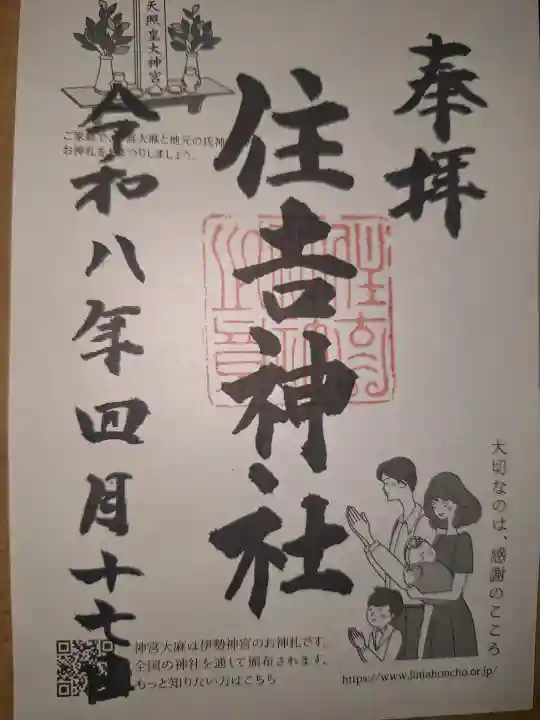 奉拝
住吉神社
令和八年四月十七日
天照皇大神宮
お神札をおまつりしましょう。
大切なのは、感謝のこころ
神宮大麻は伊勢神宮のお神札です。
全国の神社を通して頒布されます。
もっと知りたい方はこちら
https://www.jinjahoncho.or.jp/